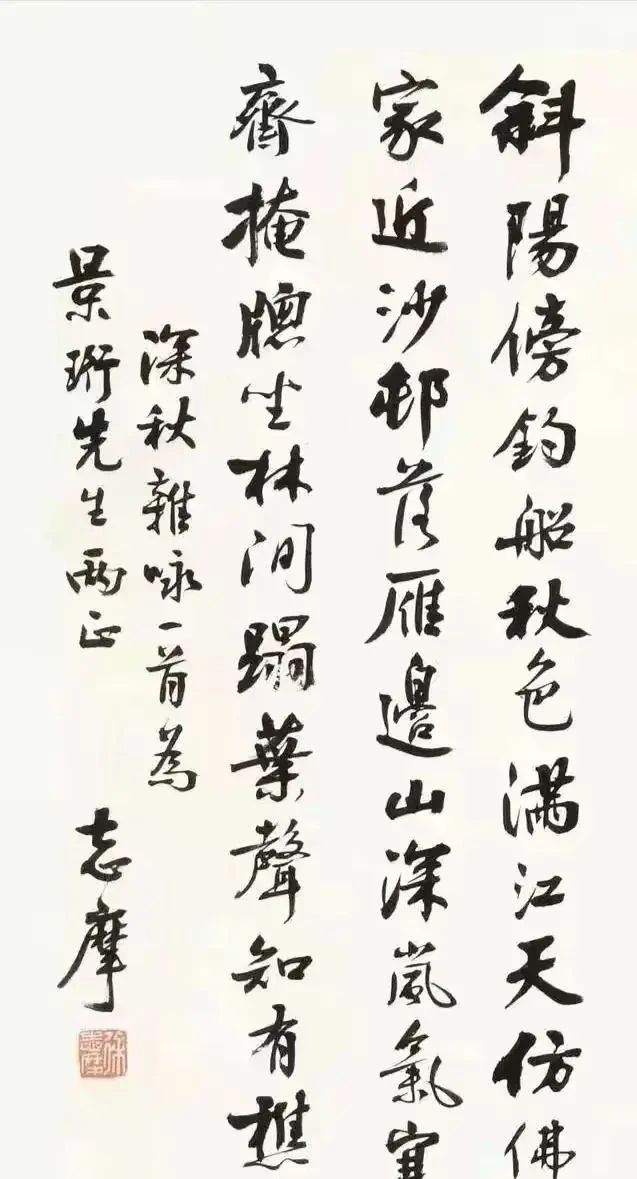 斜陽傍釣船秋色滿江天仿佛
家近沙邨落雁邊山深嵐氣
齊掩牕坐林間蹋葉聲知有樵
深秋雜咏一首為
景珩先生兩正
志摩
徐志摩